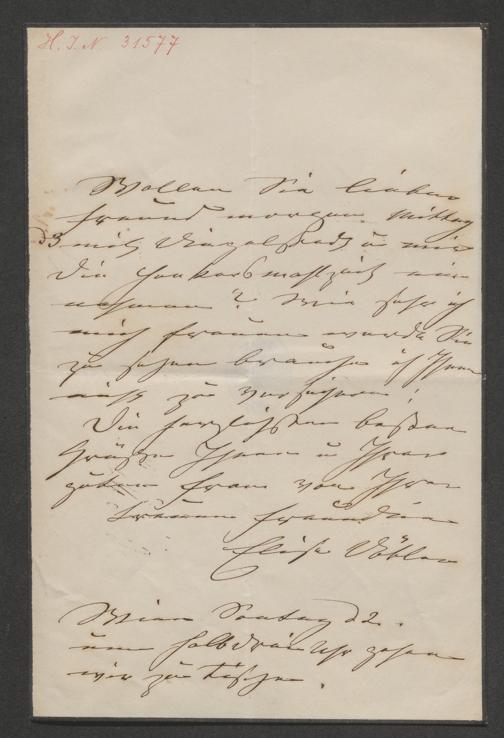 H. I. N. 31577
Wollen Sie lieber
Freund morgen Mittag
23 mit Dingelstedt u mir
die Henkersmahlzeit ein
nehmen? Wie sehr ich
mich freuen werde Sie
zu sehen brauche ich Ihnen
nicht zu versichern!
Die herzlichsten besten
Grüße Ihnen u Ihrer
guten Frau von Ihrer
treuen Freundin
Elise
Wien Sontag 22.
um halb drei Uhr gehen
wir zu Tische.